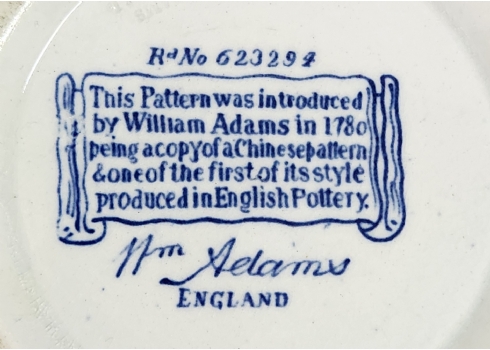 Rd No 623294
This Pattern was introduced
by William Adams in 1780
being a copy of a Chinese pattern
& one of the first of its style
produced in English Pottery.
Wm Adams
ENGLAND